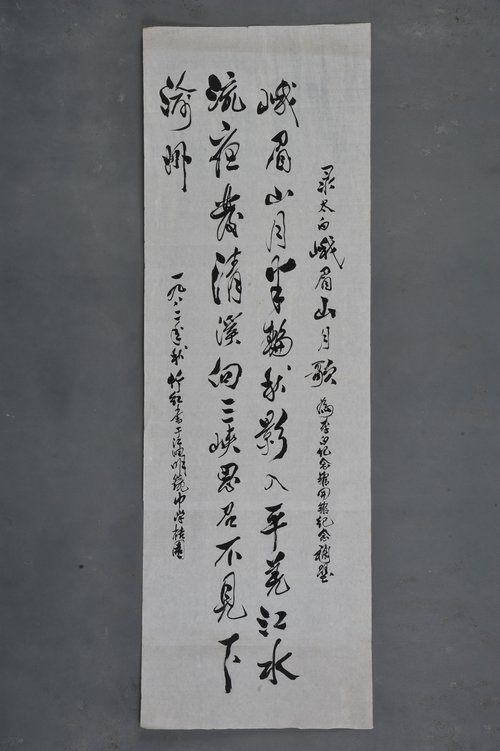 录太白峨眉山月歌 为李白纪念馆开馆纪念补壁
峨眉山月半轮秋影入平羌江水
流夜发清溪向三峡思君不见下
渝州
一九八二年秋 竹 书于江 明镜中学